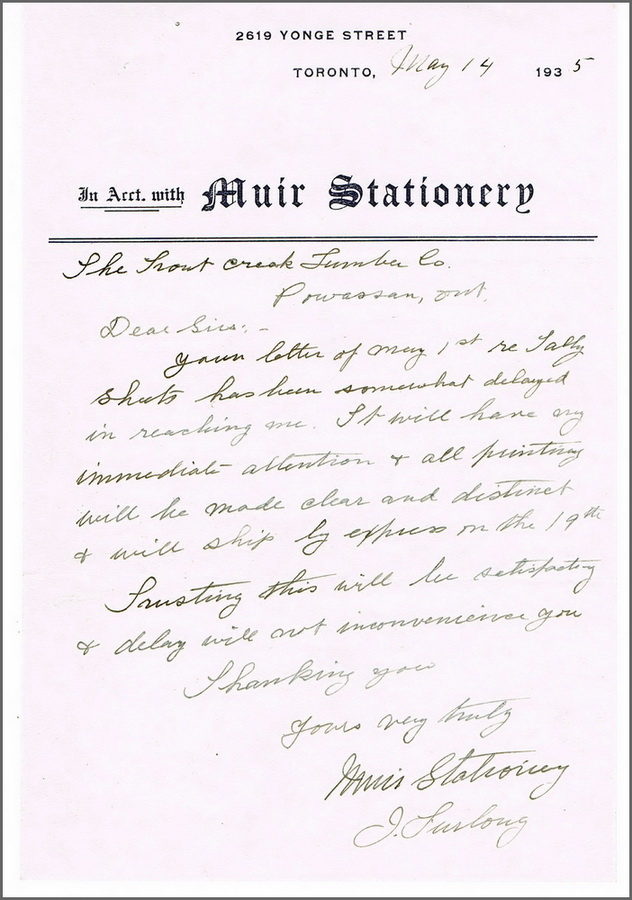 2619 YONGE STREET
TORONTO, May 14 1935
In Acct. with Muir Stationery
The Trout Creek Lumber Co.
Powassan, Ont.
Dear Sirs:-
Your letter of May 1st re Tally
Sheets has been somewhat delayed
in reaching me. It will have my
immediate attention & all printing
will be made clear and distinct
& will ship by express on the 19th
Trusting this will be satisfactory
& delay will not inconvenience you
Thanking you
Yours very truly
Muir Stationery
J. Furlong